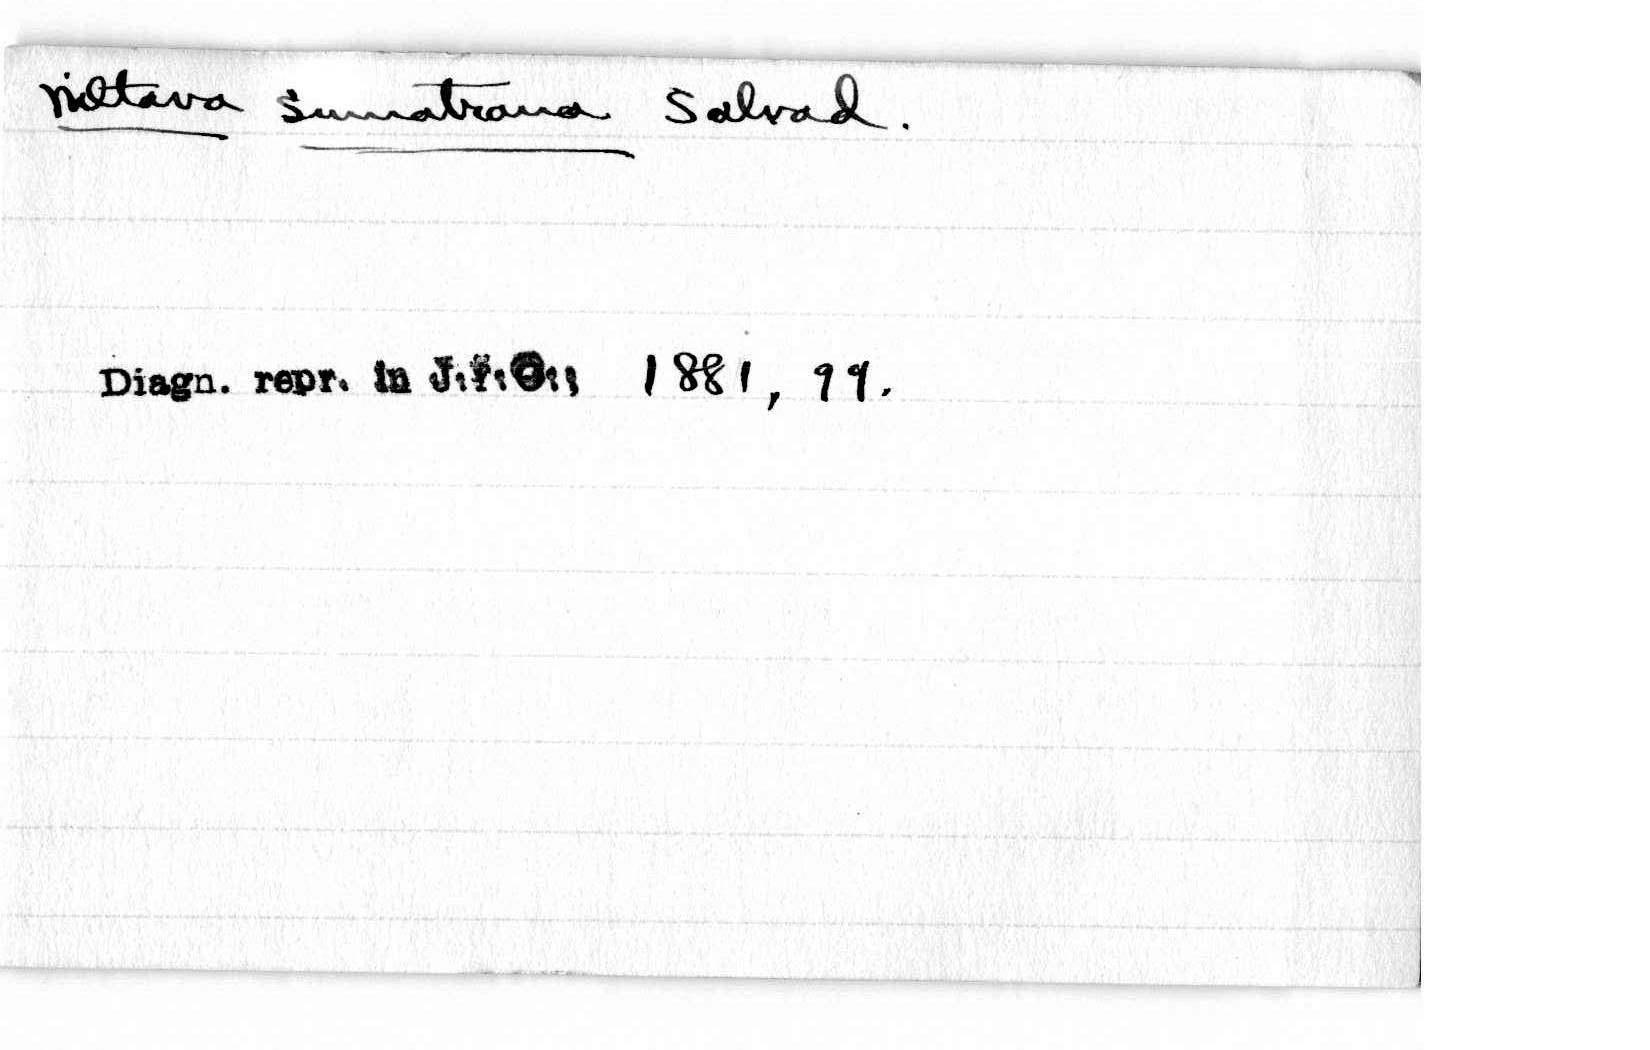 Niltava sumatrana Salvad.
Diagn. repr. in J.f.O., 1881, 99.